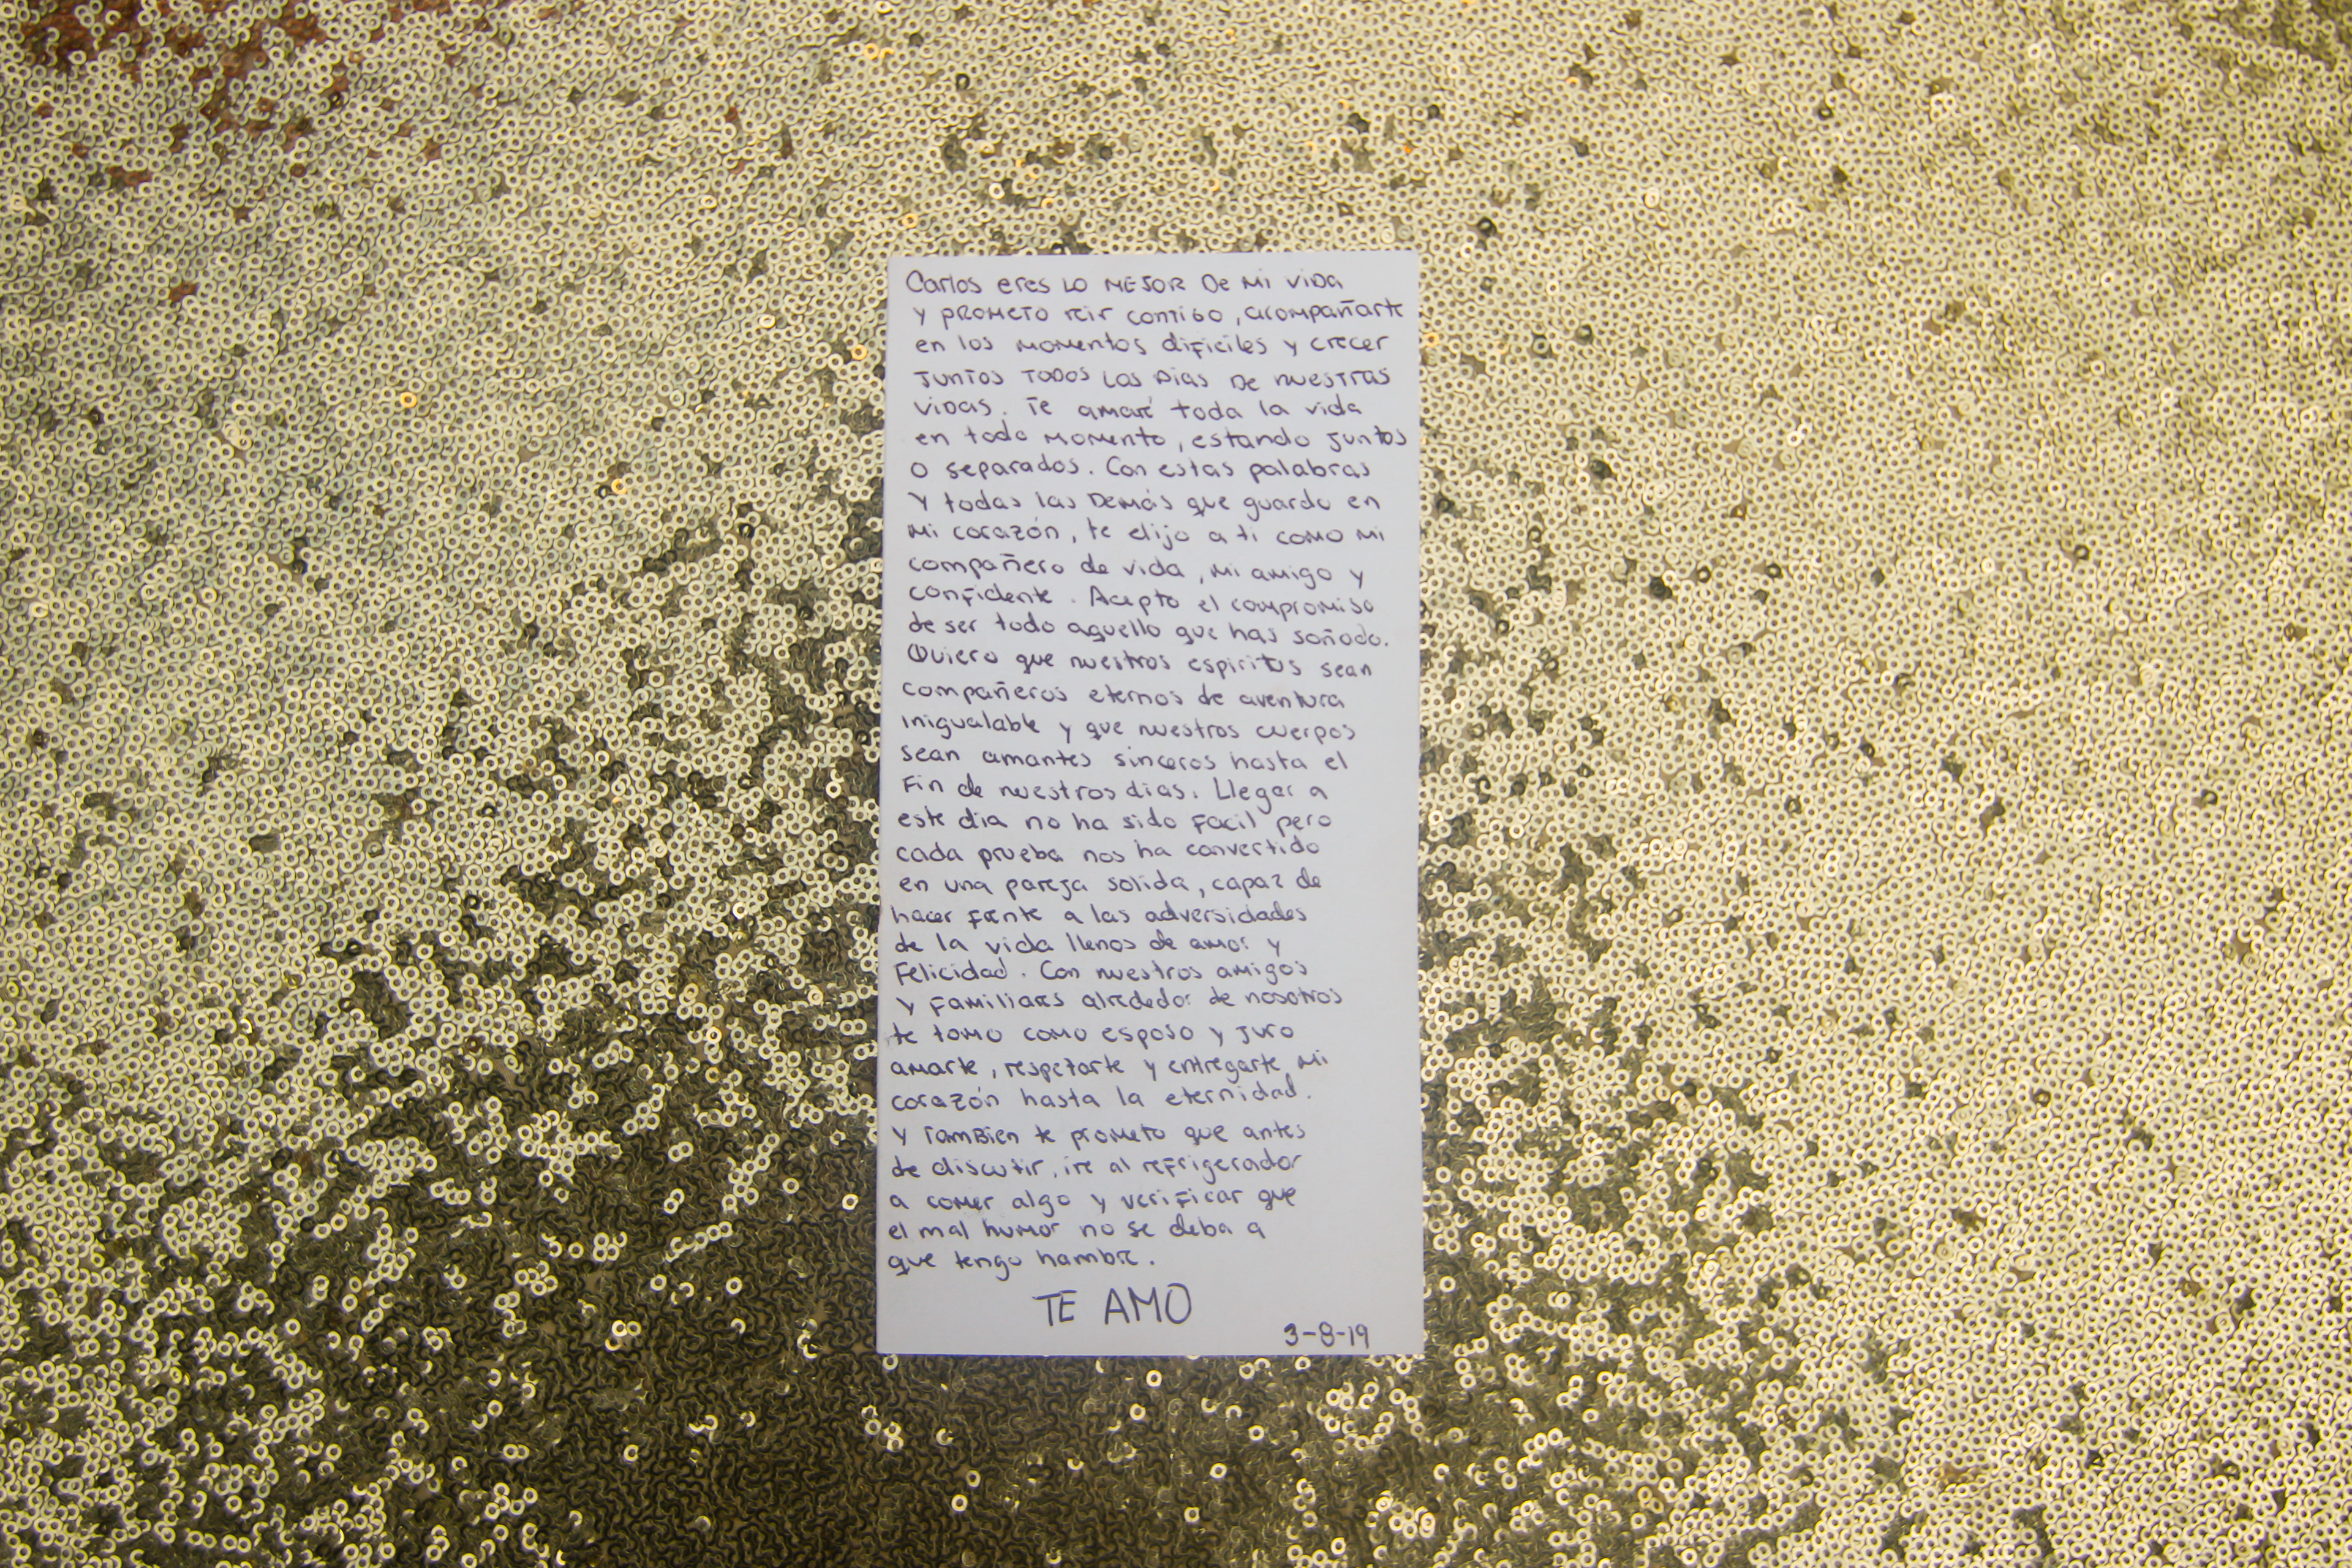 Carlos eres LO MEJOR De Mi ViDa
y PROMETO reir contigo, acompañarte
en los MOMentos dificiles y crecer
JUNTOS TODOS Los Dias De nuestras
ViDas. Te amaré toda la vida
en todo momento, estando juntos
o separados. Con estas palabras
Y todas las Demás que guardo en
Mi corazón, te elijo a ti como mi
compañero de vida, mi amigo y
confidente. Acepto el compromiso
de ser todo aquello que has soñado.
Quiero que nuestros espiritus sean
compañeros eternos de aventura
inigualable y que nuestros cuerpos
sean amantes sinceros hasta el
Fin de nuestros dias. Llegar a
este dia no ha sido Facil pero
cada prueba nos ha convertido
en una pareja solida, capaz de
hacer frente a las adversidades
de la vida llenos de amor y
Felicidad. Con nuestros amigos
y Familiares alrededor de nosotros
te tomo como esposo y juro
amarte, respetarte y entregarte mi
corazón hasta la eternidad.
Y TamBien te prometo que antes
de discutir, ire al refrigerador
a comer algo y verificar que
el mal humor no se deba a
que tengo hambre.
TE AMO
3-8-19